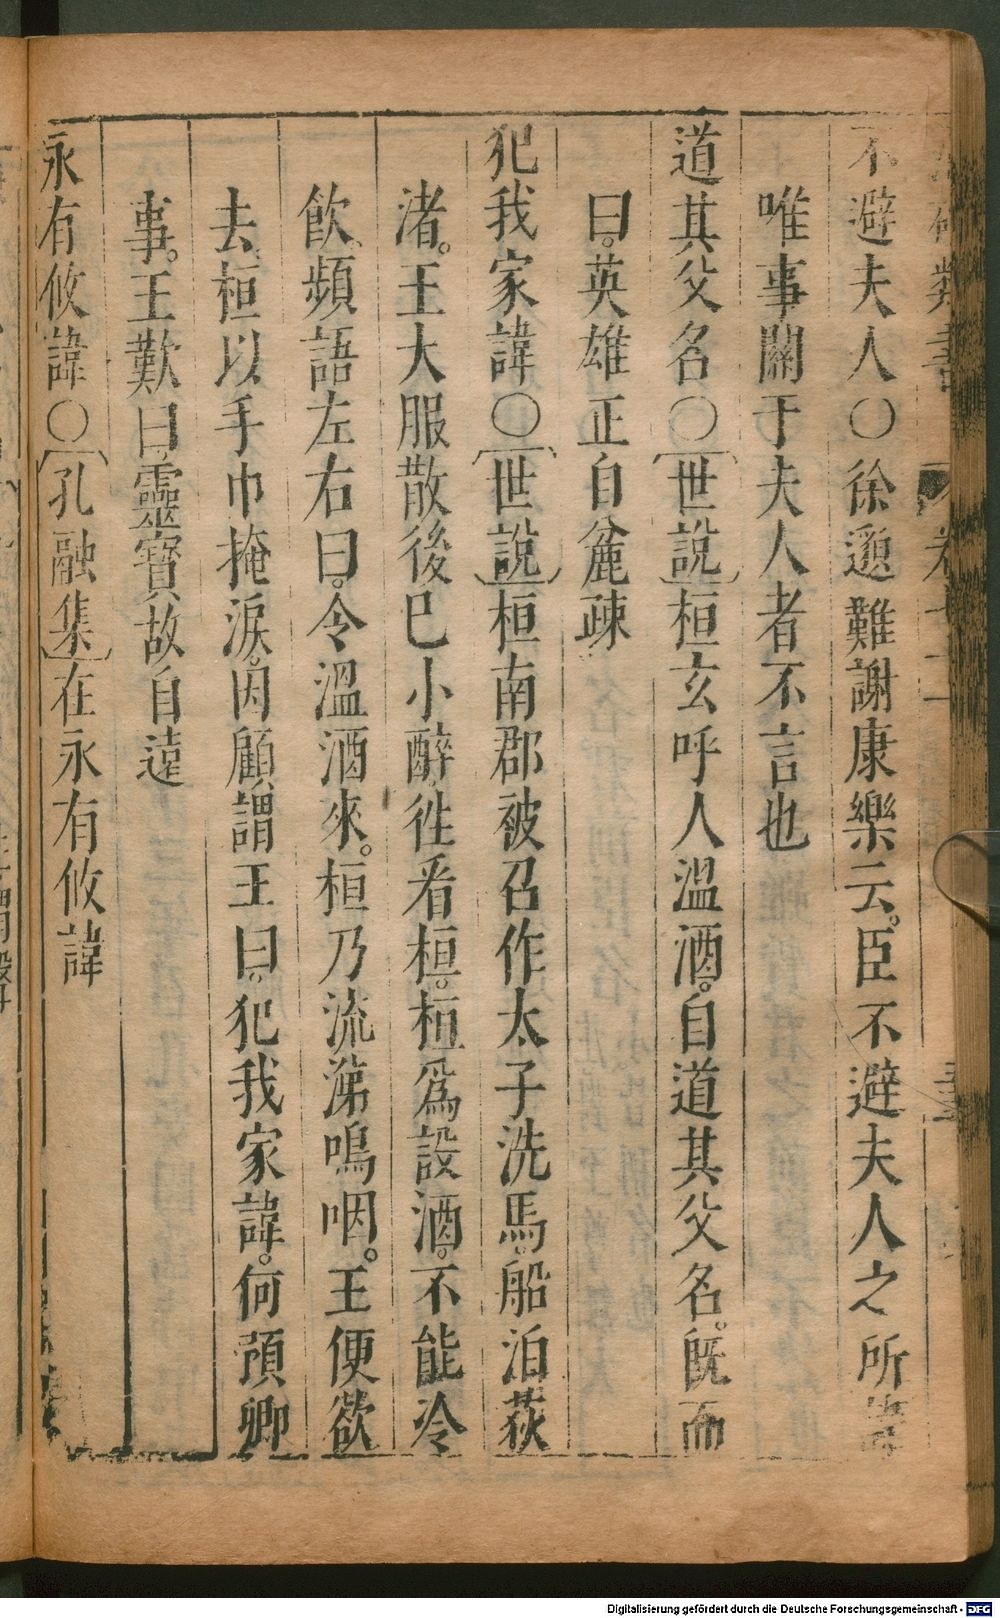 不避夫人〇徐邈難謝康樂云。臣不避夫人之所諱
唯事關于夫人者不言也
道其父名〇世說桓玄呼人溫酒。自道其父名。旣而
曰。英雄正自麄疎
犯我家諱〇世說桓南郡被召作太子洗馬。船泊荻
渚。王大服散後巳小醉徃看桓。桓爲設酒。不能冷
飲。頻語左右曰。令溫酒來。桓乃流涕嗚咽。王便欲
去。桓以手巾掩淚。因顧謂王曰。犯我家諱。何預卿
事。王歎曰。靈寶故自達
永有攸諱〇孔融集在永有攸諱
Digitalisierung gefördert durch die Deutsche Forschungsgemeinschaft - DFG